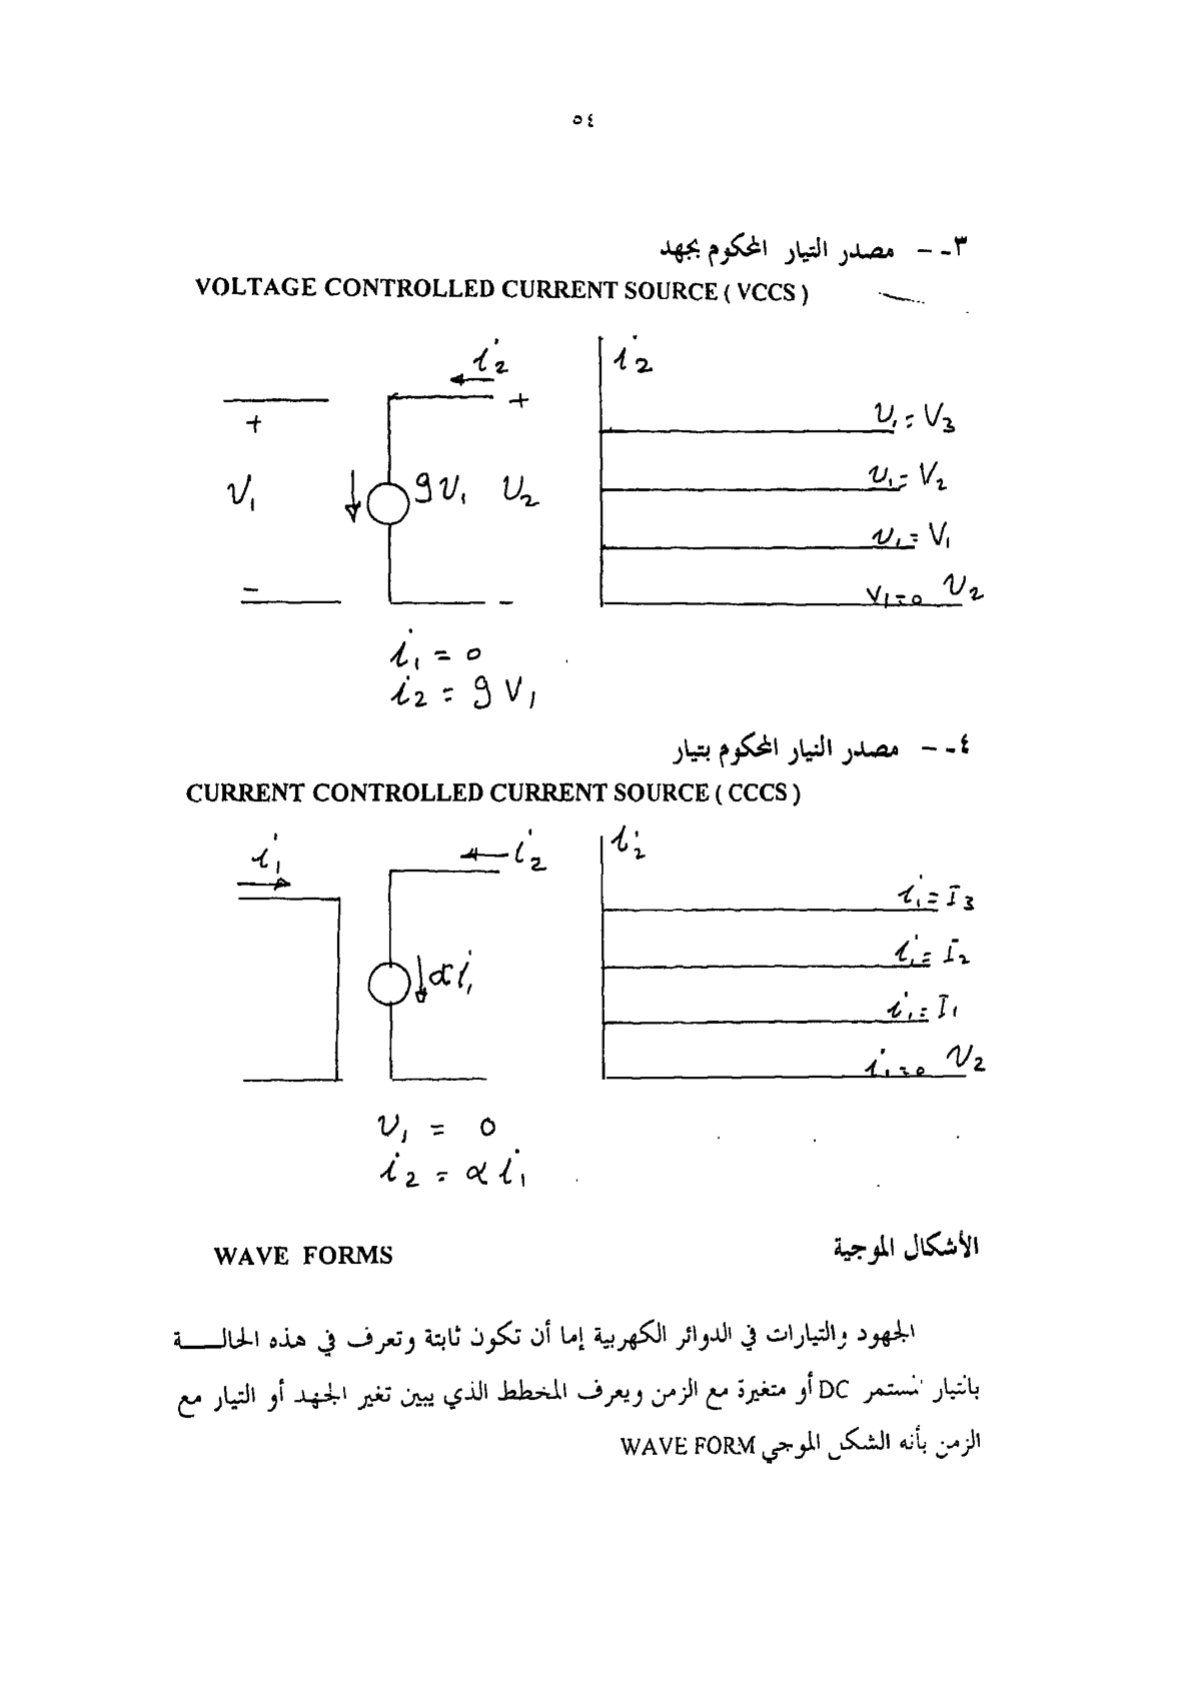 ٥٤
٣- - مصدر التيار المحكوم بجهد
VOLTAGE CONTROLLED CURRENT SOURCE ( VCCS )
i2
+
+
v1
g v1
v2
-
-
i2
v1 = V3
v1 = V2
v1 = V1
v1 = 0
v2
i1 = 0
i2 = g v1
٤- - مصدر التيار المحكوم بتيار
CURRENT CONTROLLED CURRENT SOURCE ( CCCS )
i1
i2
α i1
i2
i1 = I3
i1 = I2
i1 = I1
i1 = 0
v2
v1 = 0
i2 = α i1
الأشكال الموجية
WAVE FORMS
الجهود والتيارات في الدوائر الكهربية إما أن تكون ثابتة وتعرف في هذه الحالـــــة
بالتيار المستمر DC أو متغيرة مع الزمن ويعرف المخطط الذي يبين تغير الجهد أو التيار مع
الزمن بأنه الشكل الموجي WAVE FORM